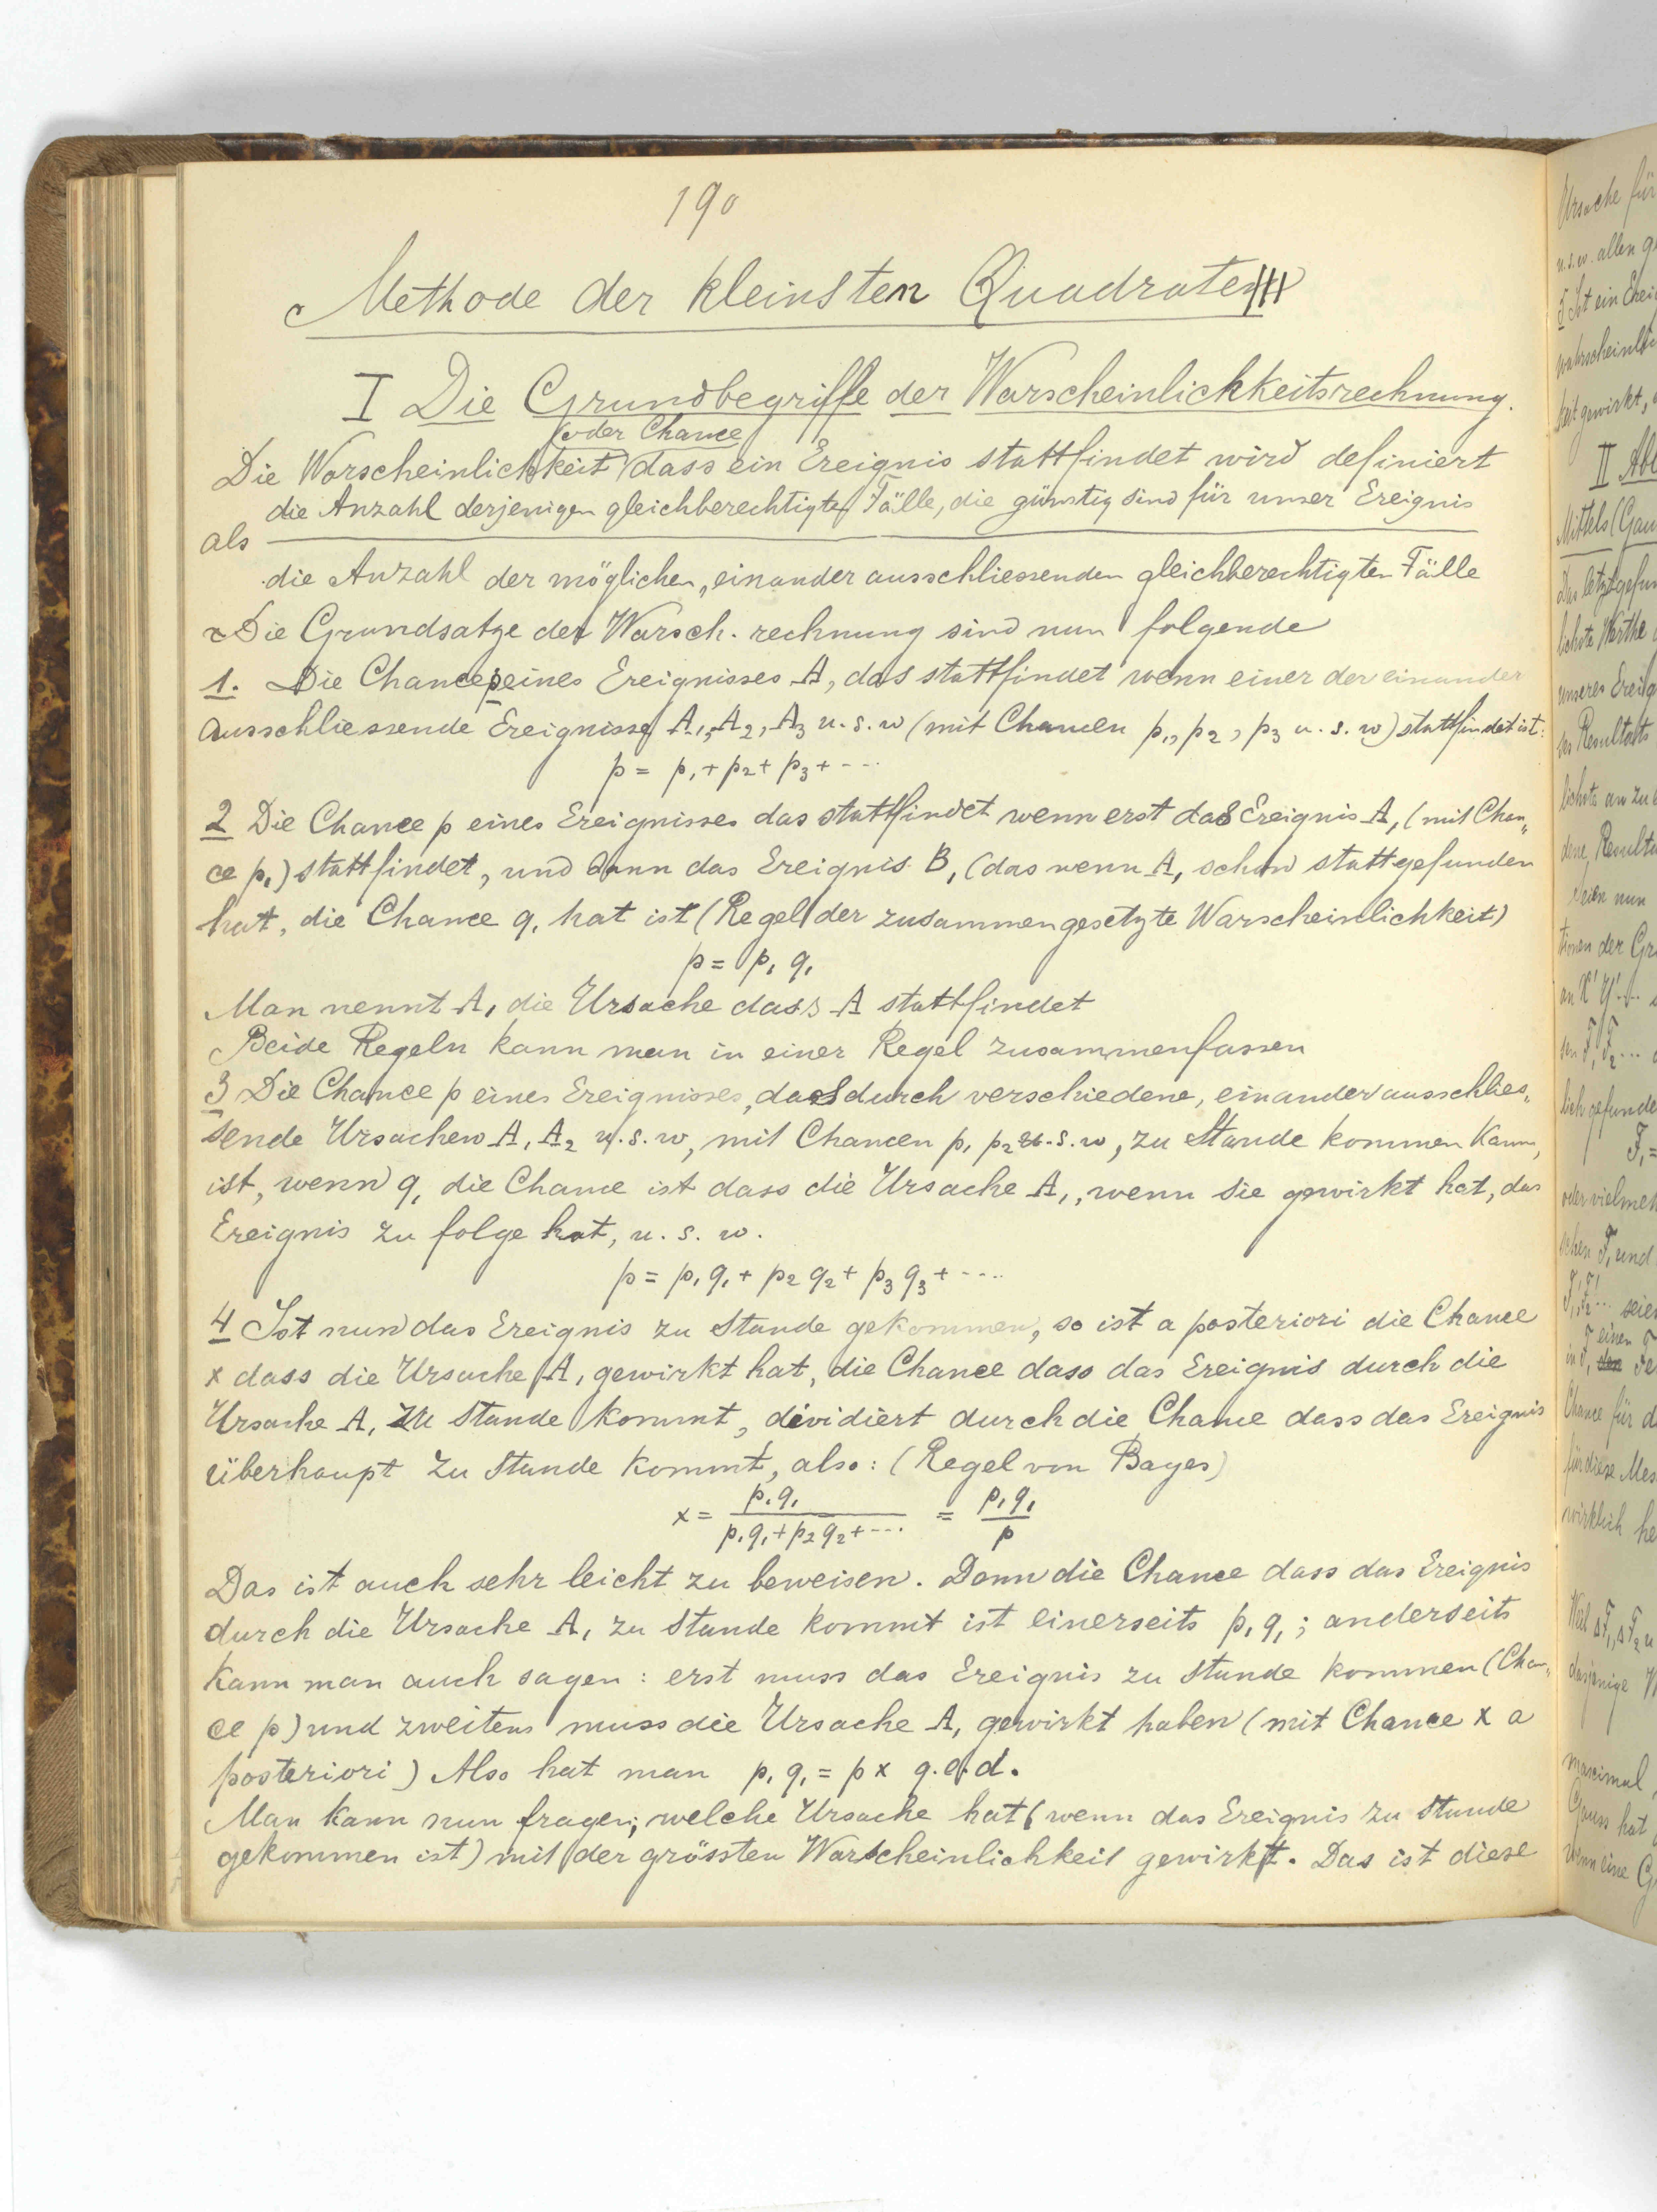 190
Methode der kleinsten Quadrate
I Die Grundbegriffe der Warscheinlichkeitsrechnung.
(oder Chance)
Die Warscheinlichkeit dass ein Ereignis stattfindet wird definiert
die Anzahl derjenigen gleichberechtigten Fälle, die günstig sind für unser Ereignis
als
die Anzahl der möglichen, einander ausschliessenden gleichberechtigten Fälle
Die Grundsatze der Warsch. rechnung sind nun folgende
1. Die Chance p eines Ereignisses A, das stattfindet wenn einer der einander
ausschliessende Ereignisse A₁, A₂, A₃ u. s. w (mit Chancen p₁, p₂, p₃ u. s. w) stattfindet ist:
p = p₁ + p₂ + p₃ + ----
2 Die Chance p eines Ereignisses das stattfindet wenn erst das Ereignis A₁ (mit Chan„
ce p₁) stattfindet, und dann das Ereignis B₁ (das wenn A₁ schon stattgefunden
hat, die Chance q₁ hat ist (Regel der zusammengesetzte Warscheinlichkeit)
p = p₁ q₁
Man nennt A₁ die Ursache dass A stattfindet
Beide Regeln kann man in einer Regel zusammenfassen
3 Die Chance p eines Ereignisses, das durch verschiedene, einander ausschlies„
sende Ursachen A₁ A₂ u. s. w, mit Chancen p₁ p₂ u. s. w, zu Stande kommen kann,
ist, wenn q₁ die Chance ist dass die Ursache A₁, wenn sie gewirkt hat, das
Ereignis zu folge hat, u. s. w.
p = p₁ q₁ + p₂ q₂ + p₃ q₃ + ----
4 Ist nun das Ereignis zu Stande gekommen, so ist a posteriori die Chance
x dass die Ursache A₁ gewirkt hat, die Chance dass das Ereignis durch die
Ursache A₁ zu Stande kommt, dividiert durch die Chance dass das Ereignis
überhaupt zu Stande kommt, also: (Regel von Bayes)
x = p₁q₁ / (p₁q₁ + p₂q₂ + ----) = p₁q₁ / p
Das ist auch sehr leicht zu beweisen. Denn die Chance dass das Ereignis
durch die Ursache A₁ zu Stande kommt ist einerseits p₁ q₁; anderseits
kann man auch sagen: erst muss das Ereignis zu Stande kommen (Chan„
ce p) und zweitens muss die Ursache A₁ gewirkt haben (mit Chance x a
posteriori) Also hat man p₁ q₁ = p x q.e.d.
Man kann nun fragen; welche Ursache hat (wenn das Ereignis zu Stande
gekommen ist) mit der grössten Warscheinlichkeit gewirkt. Das ist diese
Ursache für
u.s.w. allen
5 Ist ein
keit gewirkt,
II
Mittels
unseres
des Resultats
nun
tionen der
lich gefunde
oder vielmeh
und
seien
einen
Chance für
für diese
wirklich
Weil
dasjenige
maximal
Gauss hat
Wenn eine